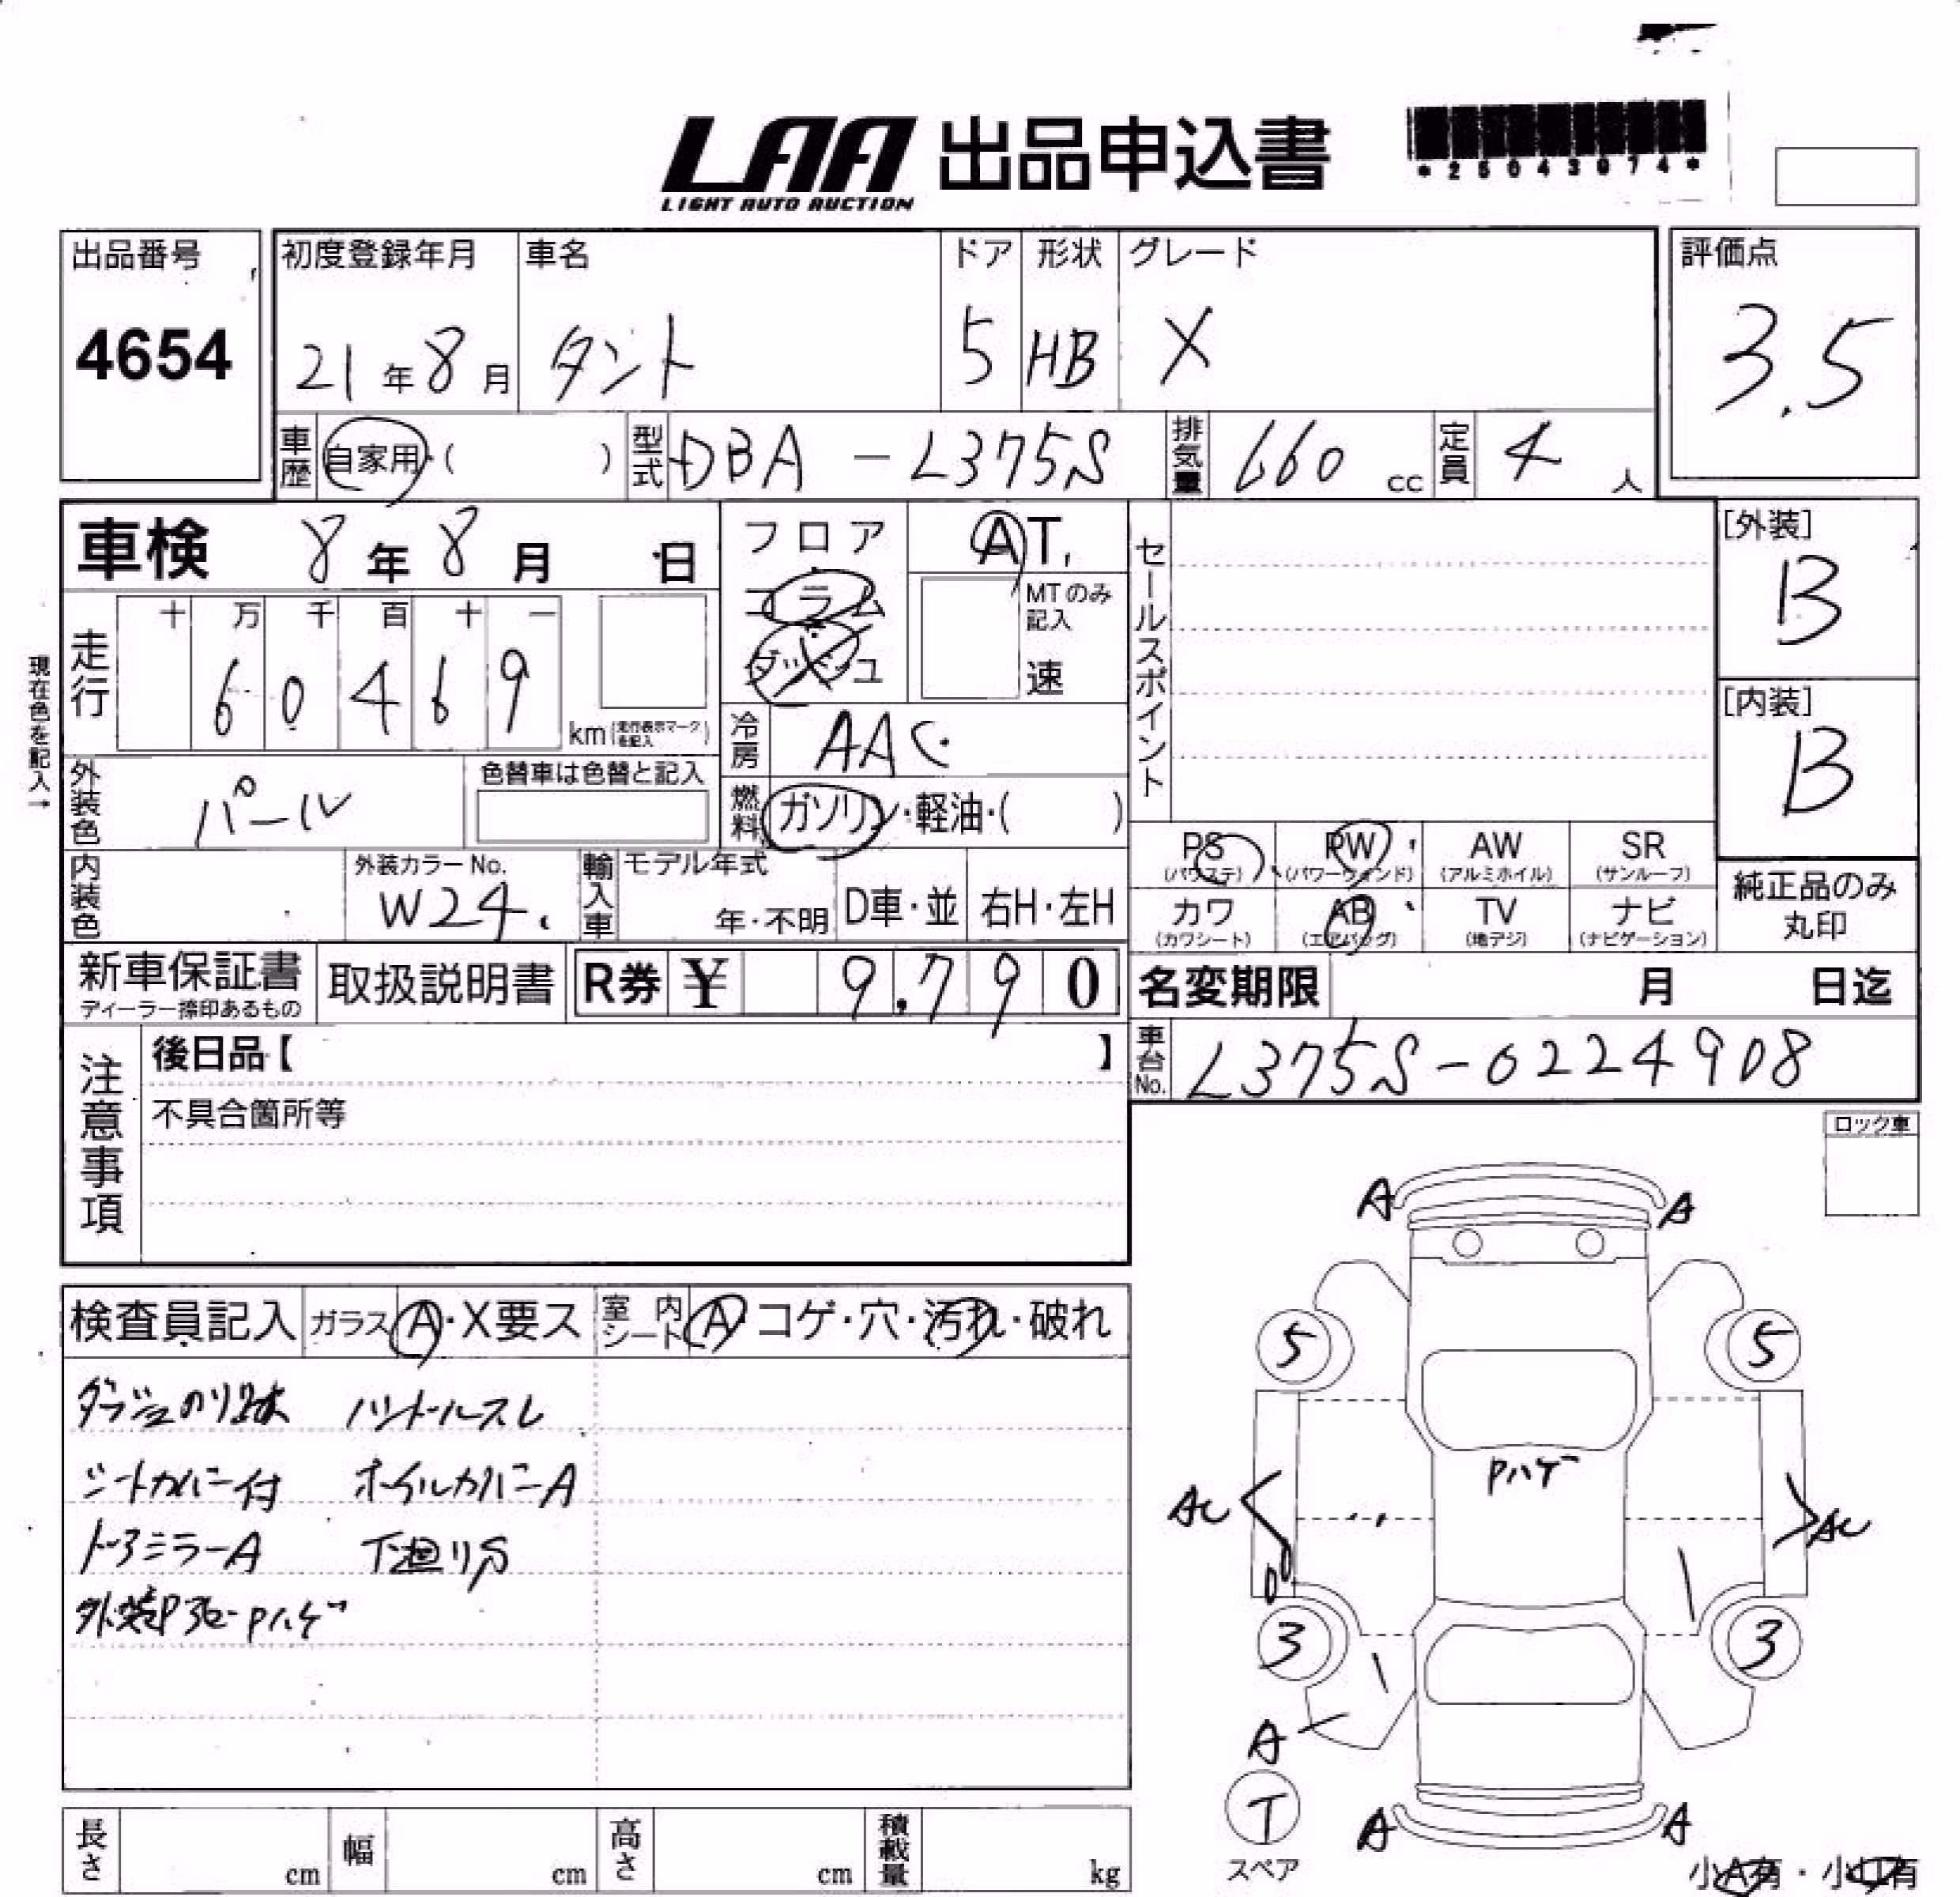 LAA 出品申込書
LIGHT AUTO AUCTION
*25043074*
出品番号
4654
初度登録年月 車名 ドア 形状 グレード
21年8月 タント 5 HB X
評価点
3.5
車歴 自家用・( ) 型式 DBA-L375S 排気量 660cc 定員 4人
車検 8年8月 日
フロア
コラム
ダッシュ
AT
MTのみ記入
速
セールスポイント
[外装]
B
[内装]
B
現在色を記入→
走行 十 万 千 百 十 一
60469
km(走行表示マークを記入)
冷房 AAC
外装色 パール 色替車は色替と記入
燃料 ガソリン・軽油・( )
内装色 外装カラーNo. W24
輸入車 モデル年式 年・不明 D車・並 右H・左H
PS PW AW SR
(パワステ) (パワーウィンド) (アルミホイル) (サンルーフ)
カワ AB TV ナビ
(カワシート) (エアバッグ) (地デジ) (ナビゲーション)
純正品のみ
丸印
新車保証書 取扱説明書 R券 ¥ 9,790
ディーラー捺印あるもの
名変期限 月 日迄
注意事項
後日品【 】
不具合箇所等
車台No. L375S-0224908
ロック車
検査員記入 ガラス A・X要ス 室内シート A・コゲ・穴・汚れ・破れ
ダッシュのり跡 ハンドルスレ
シートカバー付 ホイルカバーA
ドアミラーA 下廻りS
外装P PハゲA A
5 5
Pハゲ
AC AC
3 3
A
T
スペア
A A
小A有・小凹有
長さ cm 幅 cm 高さ cm 積載量 kg